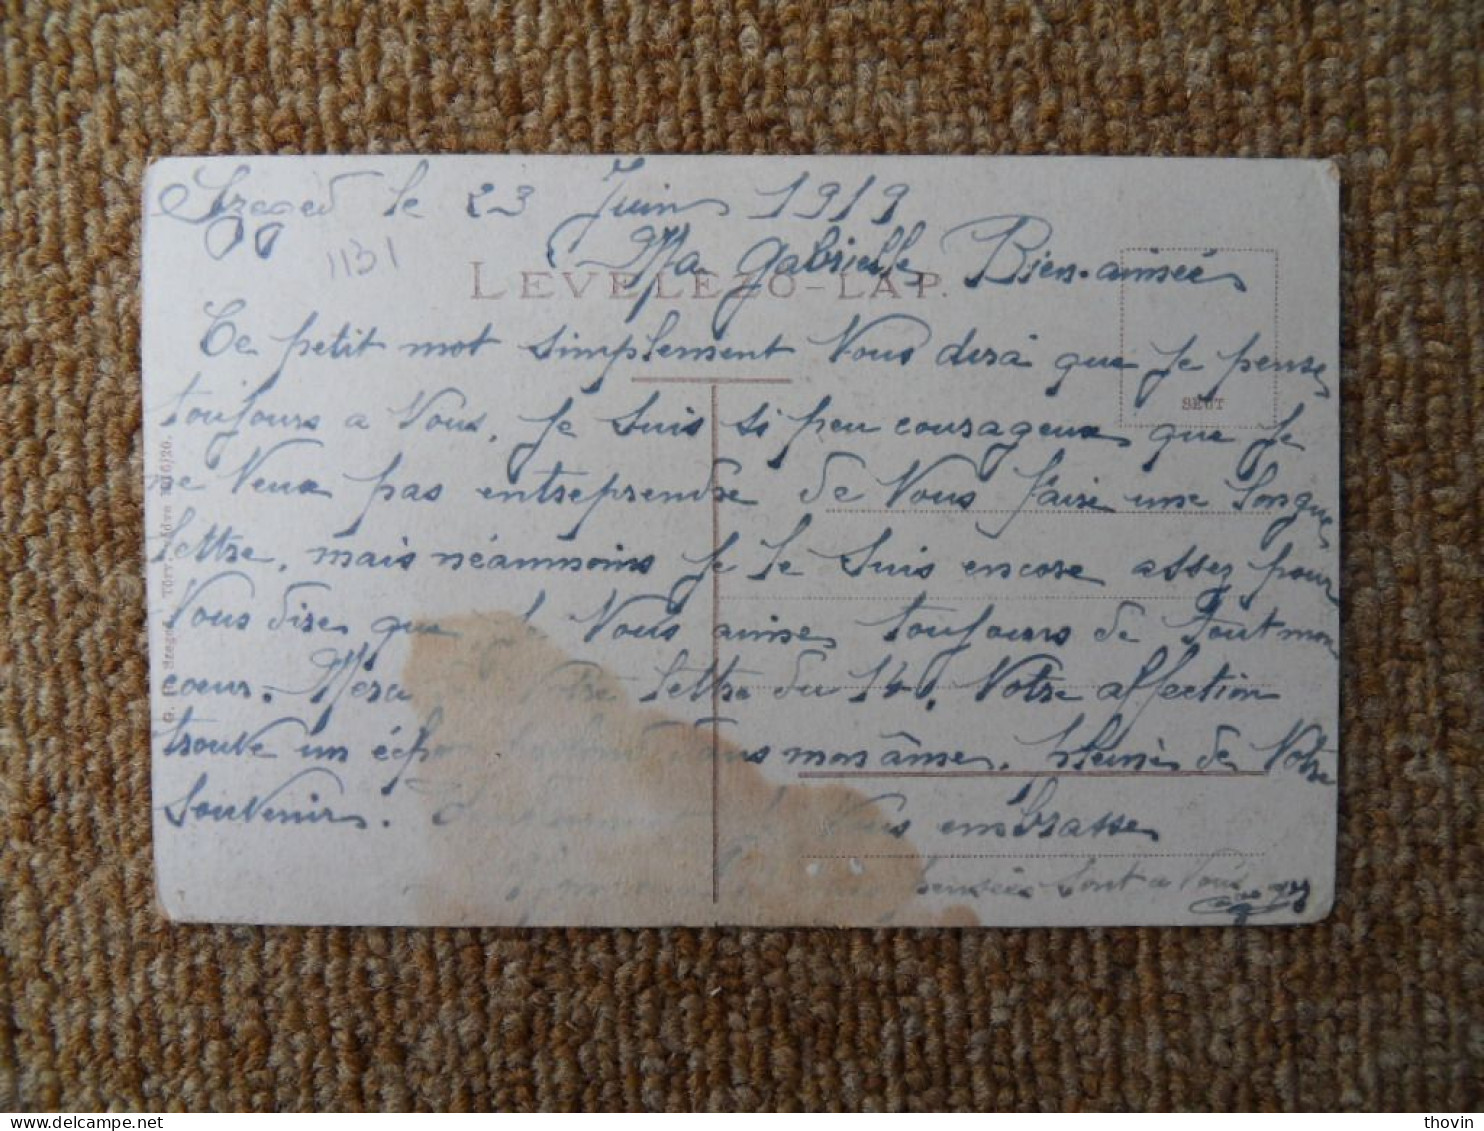 Szeged le 23 Juin 1919
1131
Ma Gabrielle Bien-aimée
LEVELEZŐ-LAP.
Ce petit mot simplement Vous dira que je pense
toujours a Vous. Je suis si peu courageux que je
ne Veux pas entreprendre de Vous faire une longue
lettre, mais néammoins je le suis encore assez pour
Vous dire que je Vous aime toujours de Tout mon
coeur. Merci Votre lettre du 14. Votre affection
trouve un écho dans mon âme. pleine de Votre
Souvenir. Vous embrasse
pensées sont a Vous
BEUT
1916/20.
thovin
delcampe.net